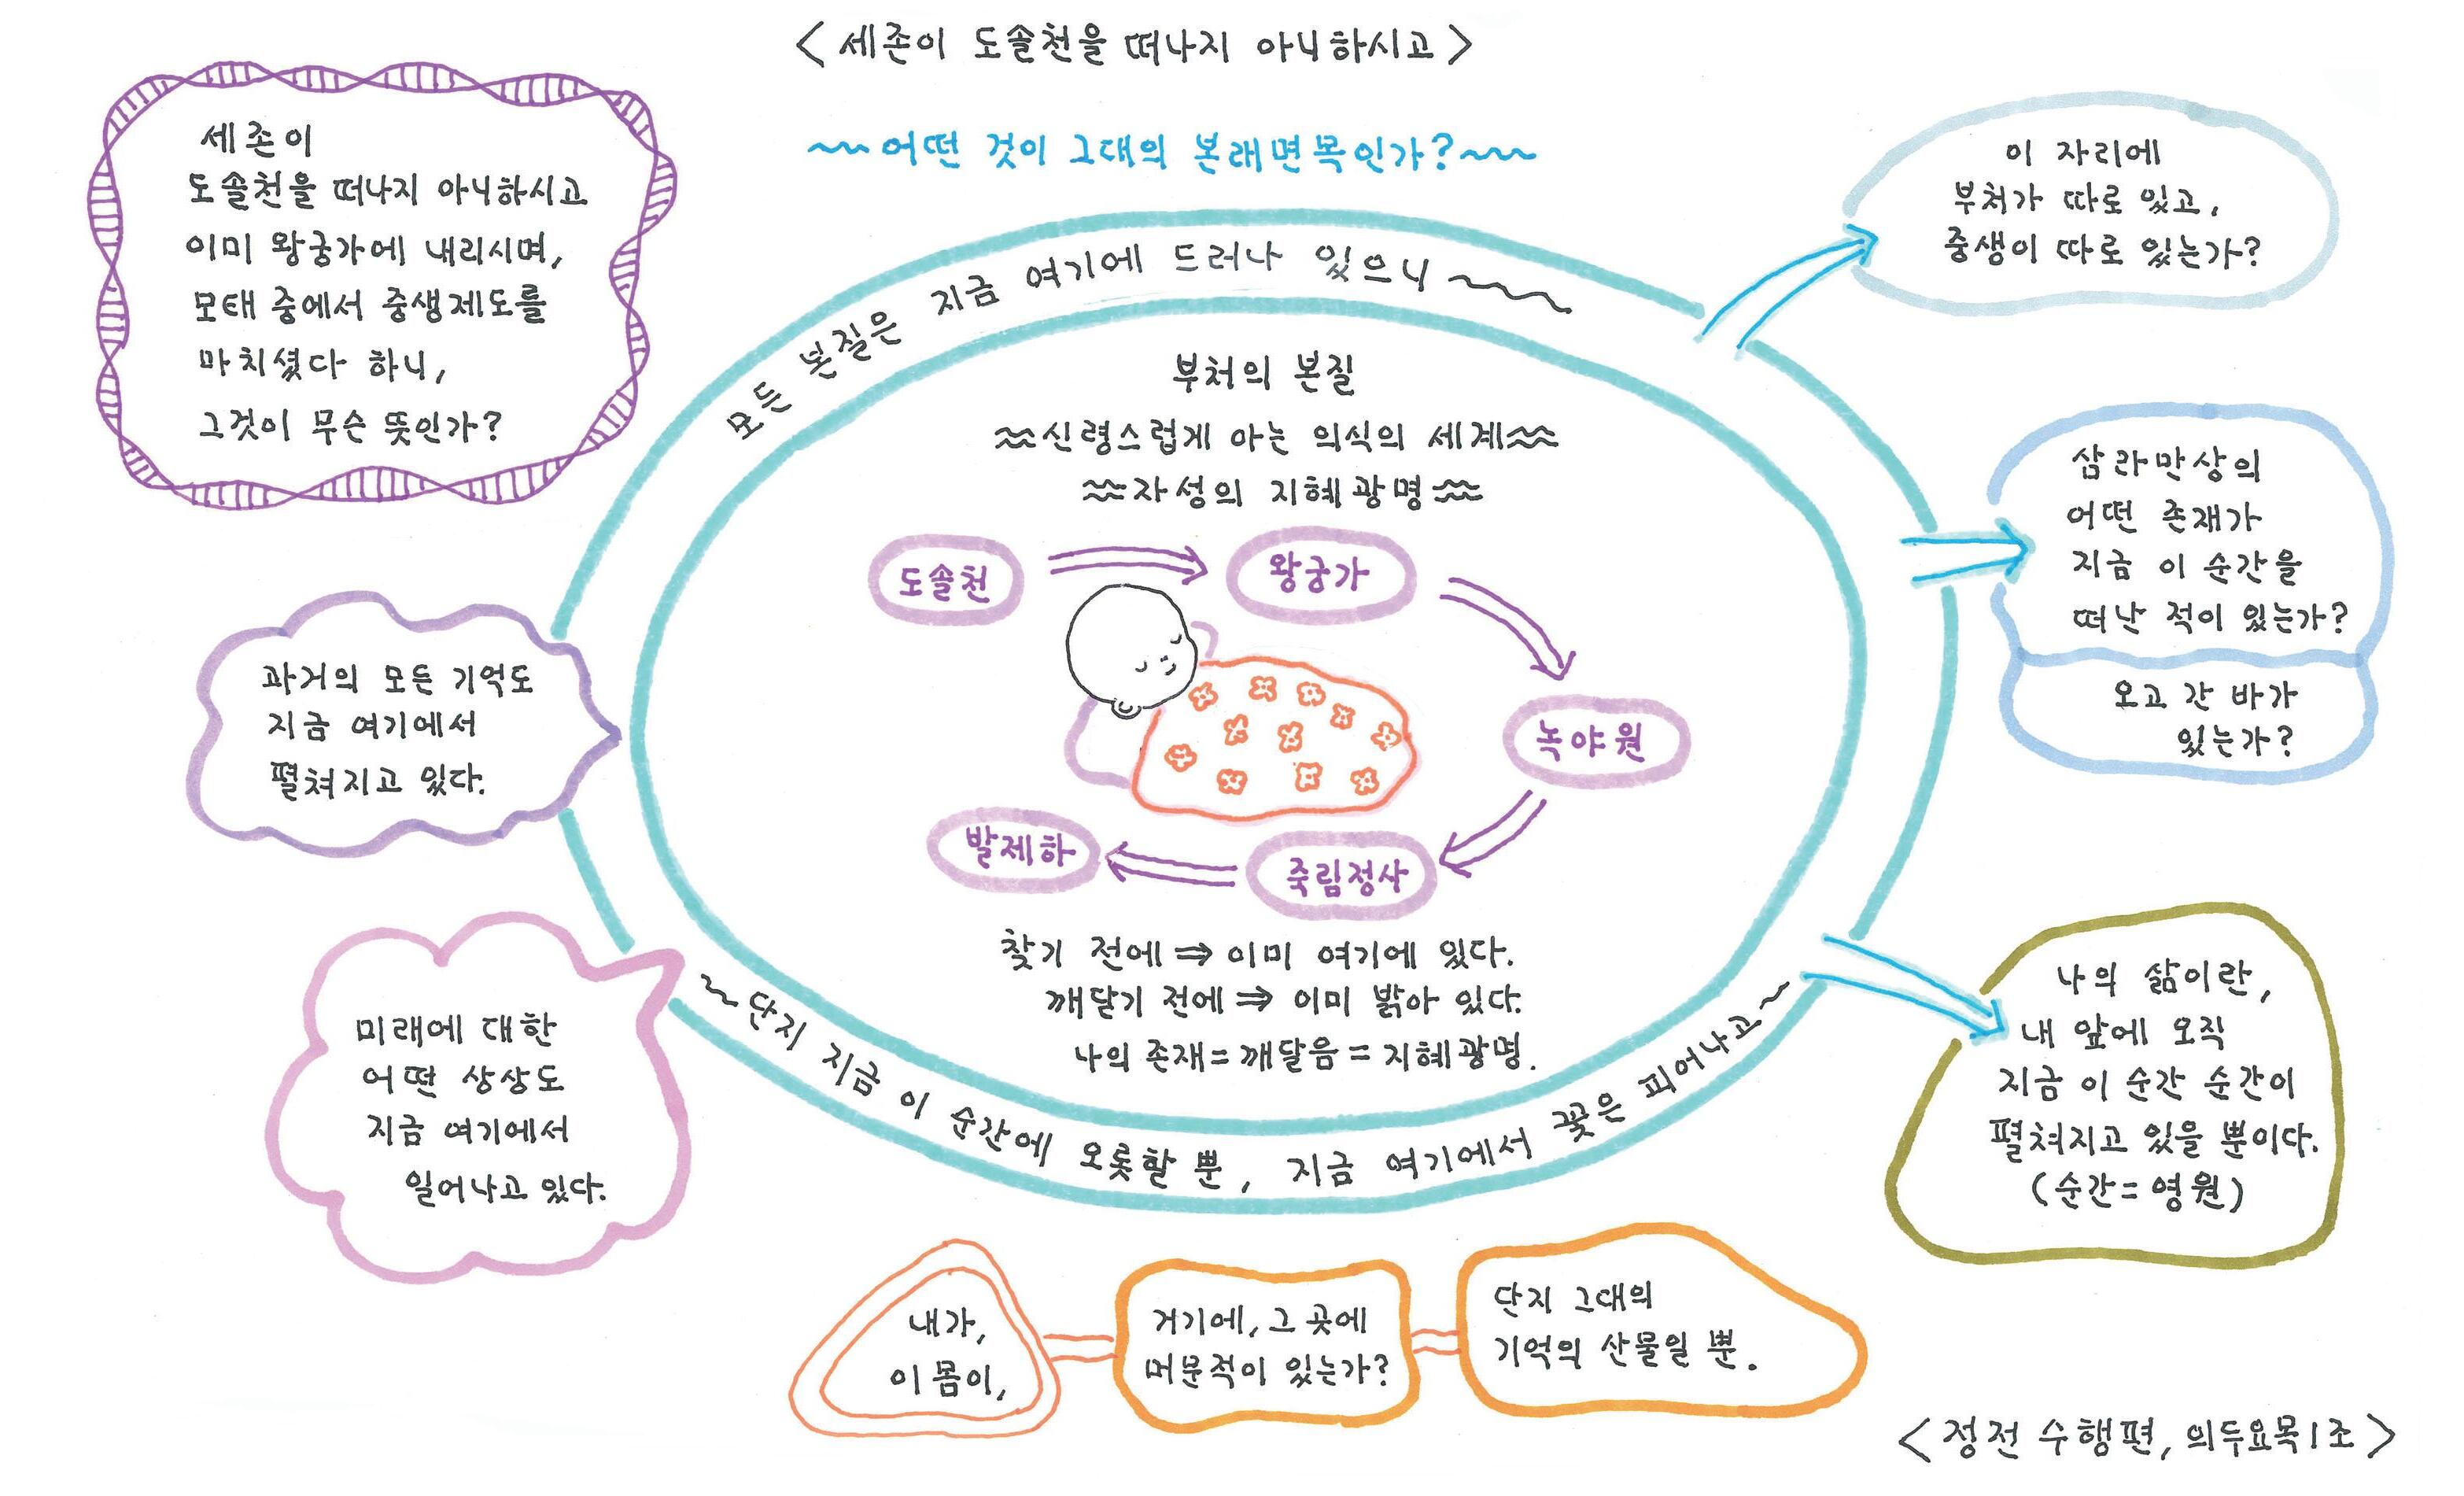 <세존이 도솔천을 떠나지 아니하시고>
어떤 것이 그대의 본래면목인가?
세존이
도솔천을 떠나지 아니하시고
이미 왕궁가에 내리시며,
모태 중에서 중생제도를
마치셨다 하니,
그것이 무슨 뜻인가?
모든 본질은 지금 여기에 드러나 있으니
이 자리에
부처가 따로 있고,
중생이 따로 있는가?
부처의 본질
신령스럽게 아는 의식의 세계
자성의 지혜광명
도솔천
왕궁가
녹야원
죽림정사
발제하
찾기 전에 ⇒ 이미 여기에 있다.
깨닫기 전에 ⇒ 이미 밝아 있다.
나의 존재 = 깨달음 = 지혜광명.
삼라만상의
어떤 존재가
지금 이 순간을
떠난 적이 있는가?
오고 간 바가
있는가?
과거의 모든 기억도
지금 여기에서
펼쳐지고 있다.
미래에 대한
어떤 상상도
지금 여기에서
일어나고 있다.
단지 지금 이 순간에 오롯할 뿐, 지금 여기에서 꽃은 피어나고
나의 삶이란,
내 앞에 오직
지금 이 순간 순간이
펼쳐지고 있을 뿐이다.
(순간 = 영원)
내가,
이 몸이,
거기에, 그 곳에
머문적이 있는가?
단지 그대의
기억의 산물일 뿐.
<정전 수행편, 의두요목 1조>